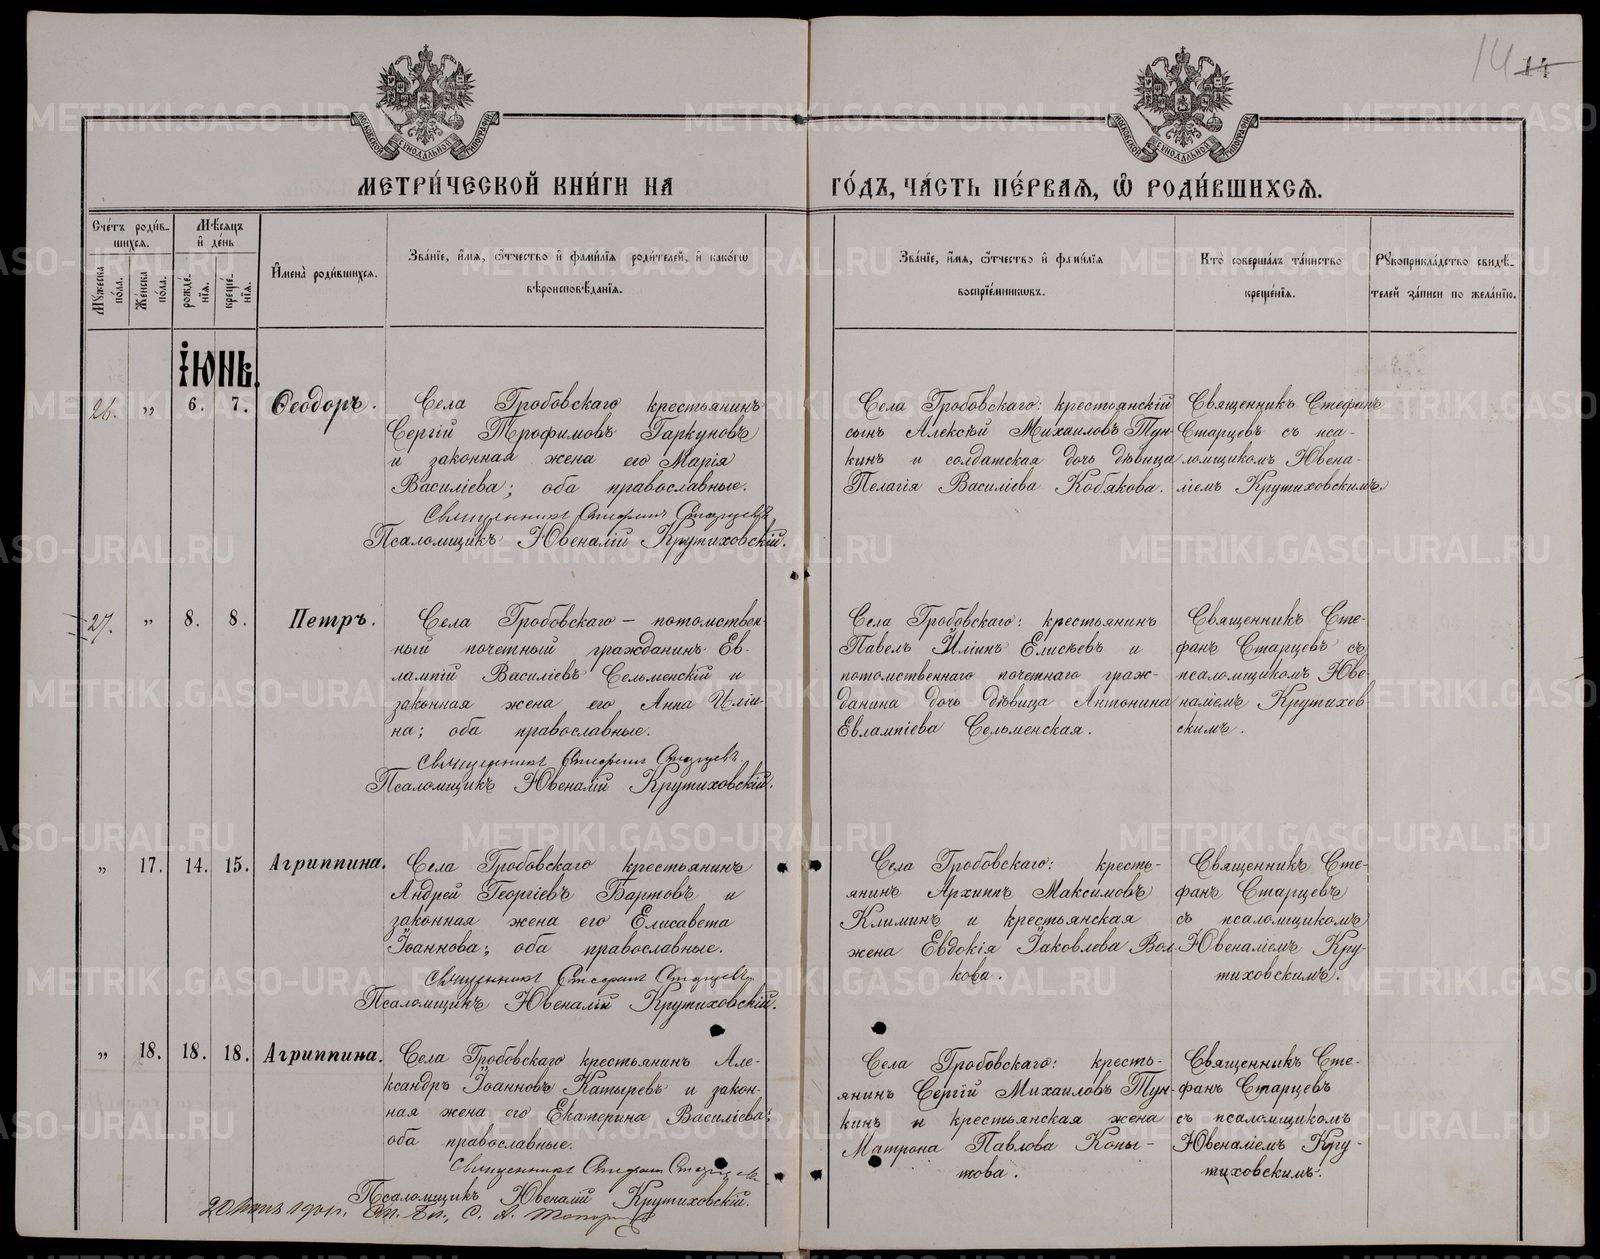 14 14
МОСКОВСКОЙ СѴНОДАЛЬНОЙ ТИПОГРАФІИ
МОСКОВСКОЙ СѴНОДАЛЬНОЙ ТИПОГРАФІИ
МЕТРИ́ЧЕСКОЙ КНИ́ГИ НА
ГО́ДЪ, ЧА́СТЬ ПЕ́РВАѦ, Ѽ РОДИ́ВШИХСѦ.
Сче́тъ роди́в-
шихсѧ.
Мꙋ́жеска по́ла.
Же́нска по́ла.
Мѣ́сѧцъ
и҆ де́нь
рожде́-
нїѧ.
креще́-
нїѧ.
И҆мена̀ роди́вшихсѧ.
Зва́нїе, и҆́мѧ, ѻ҆́тчество и҆ фами́лїѧ роди́телей, и҆ како́гѡ
вѣроисповѣ́данїѧ.
Зва́нїе, и҆́мѧ, ѻ҆́тчество и҆ фами́лїѧ
воспрїе́мниковъ.
Кто̀ соверша́лъ та́инство
креще́нїѧ.
Рꙋкоприкла́дство свидѣ́-
телей за́писи по жела́нїю.
ІЮНЬ.
26. „ 6. 7. Ѳеодоръ.
Села Гробовскаго крестьянинъ
Сергій Трофимовъ Гаркуновъ
и законная жена его Марія
Василіева; оба православные.
Священникъ Стефанъ Старцевъ
Псаломщикъ Ювеналій Крутиховскій.
Села Гробовскаго: крестьянскій
сынъ Алексѣй Михаиловъ Тун-
кинъ и солдатская дочь дѣвица
Пелагія Василіева Кобякова.
Священникъ Стефанъ
Старцевъ съ пса-
ломщикомъ Ювена-
ліемъ Крутиховскимъ.
27. „ 8. 8. Петръ.
Села Гробовскаго — потомствен-
ный почетный гражданинъ Ев-
лампій Василіевъ Сельменскій и
законная жена его Анна Иліи-
на; оба православные.
Священникъ Стефанъ Старцевъ
Псаломщикъ Ювеналій Крутиховскій.
Села Гробовскаго: крестьянинъ
Павелъ Иліинъ Елисѣевъ и
потомственнаго почетнаго граж-
данина дочь дѣвица Антонина
Евлампіева Сельменская.
Священникъ Сте-
фанъ Старцевъ съ
псаломщикомъ Юве-
наліемъ Крутихов
скимъ.
„ 17. 14. 15. Агриппина.
Села Гробовскаго крестьянинъ
Андрей Георгіевъ Бартовъ и
законная жена его Елисавета
Іоаннова; оба православные.
Священникъ Стефанъ Старцевъ
Псаломщикъ Ювеналій Крутиховскій.
Села Гробовскаго: кресть-
янинъ Архиппъ Максимовъ
Климинъ и крестьянская
жена Евдокія Іаковлева Вол-
кова.
Священникъ Сте-
фанъ Старцевъ
съ псаломщикомъ
Ювеналіемъ Кру-
тиховскимъ.
„ 18. 18. 18. Агриппина.
Села Гробовскаго крестьянинъ Але-
ксандръ Іоанновъ Катыревъ и закон-
ная жена его Екатерина Василіева;
оба православные.
Священникъ Стефанъ Старцевъ
Псаломщикъ Ювеналій Крутиховскій.
Села Гробовскаго: кресть-
янинъ Сергій Михаиловъ Тун-
кинъ и крестьянская жена
Матрона Павлова Копы-
това.
Священникъ Сте-
фанъ Старцевъ
съ псаломщикомъ
Ювеналіемъ Кру-
тиховскимъ.
METRIKI.GASO-URAL.RU